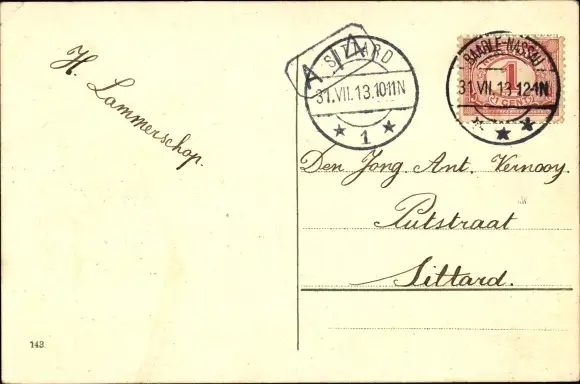 H. Lammerschop.
SITTARD
31.VII.13.10-11N
1
BAARLE-NASSAU
31.VII.13.12-1N
1
CENT
Den Jong Ant. Vernooy.
Putstraat
Sittard.
143